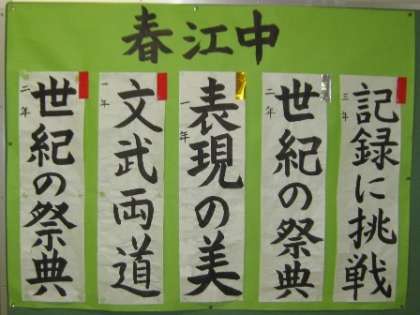 春江中
三年
記録に挑戦
二年
世紀の祭典
一年
表現の美
一年
文武両道
二年
世紀の祭典